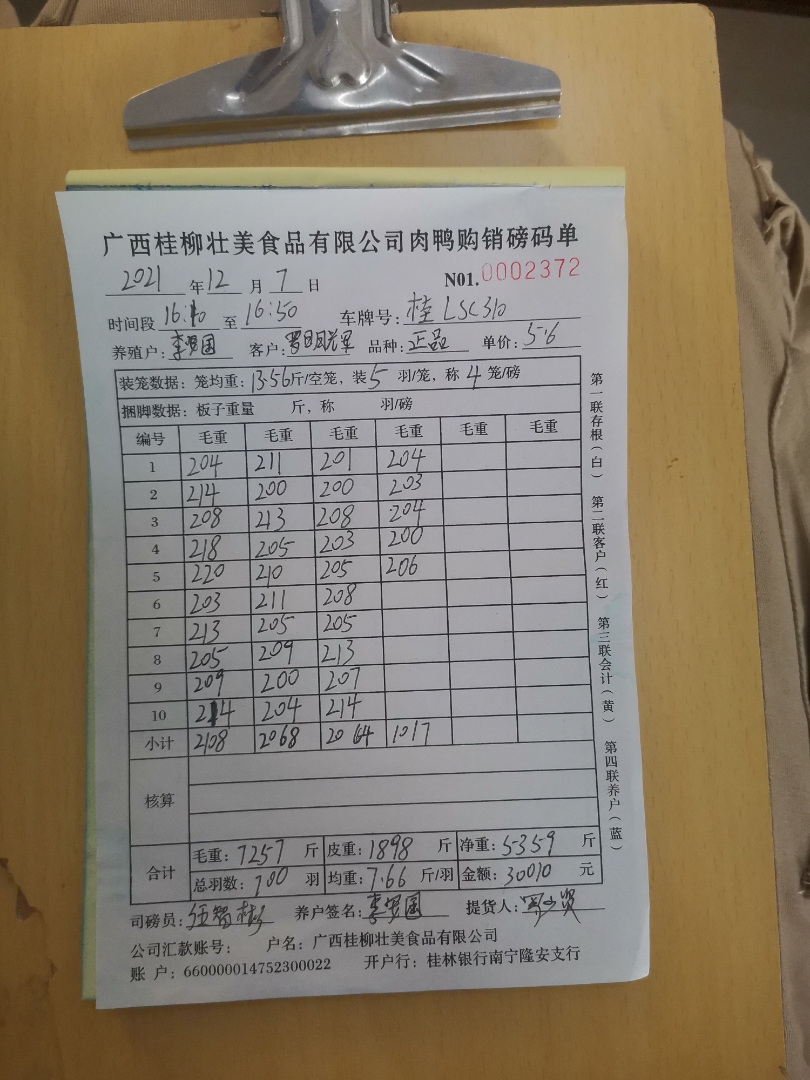 广西桂柳壮美食品有限公司肉鸭购销磅码单
2021 年 12 月 7 日 N01.0002372
时间段 16:10 至 16:50 车牌号: 桂LSC310
养殖户: 李罗国 客户: 品种: 正品 单价: 5.6
装笼数据: 笼均重: 13.56斤/空笼, 装 5 羽/笼, 称 4 笼/磅
捆脚数据: 板子重量 斤, 称 羽/磅
编号 毛重 毛重 毛重 毛重 毛重 毛重
1 204 211 201 204
2 214 200 200 203
3 208 213 208 204
4 218 205 203 200
5 220 210 205 206
6 203 211 208
7 213 205 205
8 205 209 213
9 209 200 207
10 214 204 214
小计 2108 2068 2064 1017
核算
合计 毛重: 7257 斤 皮重: 1898 斤 净重: 5359 斤
总羽数: 700 羽 均重: 7.66 斤/羽 金额: 30010 元
司磅员: 养户签名: 李罗国 提货人:
公司汇款账号: 户名: 广西桂柳壮美食品有限公司
账 户: 660000014752300022 开户行: 桂林银行南宁隆安支行
第一联存根(白) 第二联客户(红) 第三联会计(黄) 第四联养户(蓝)